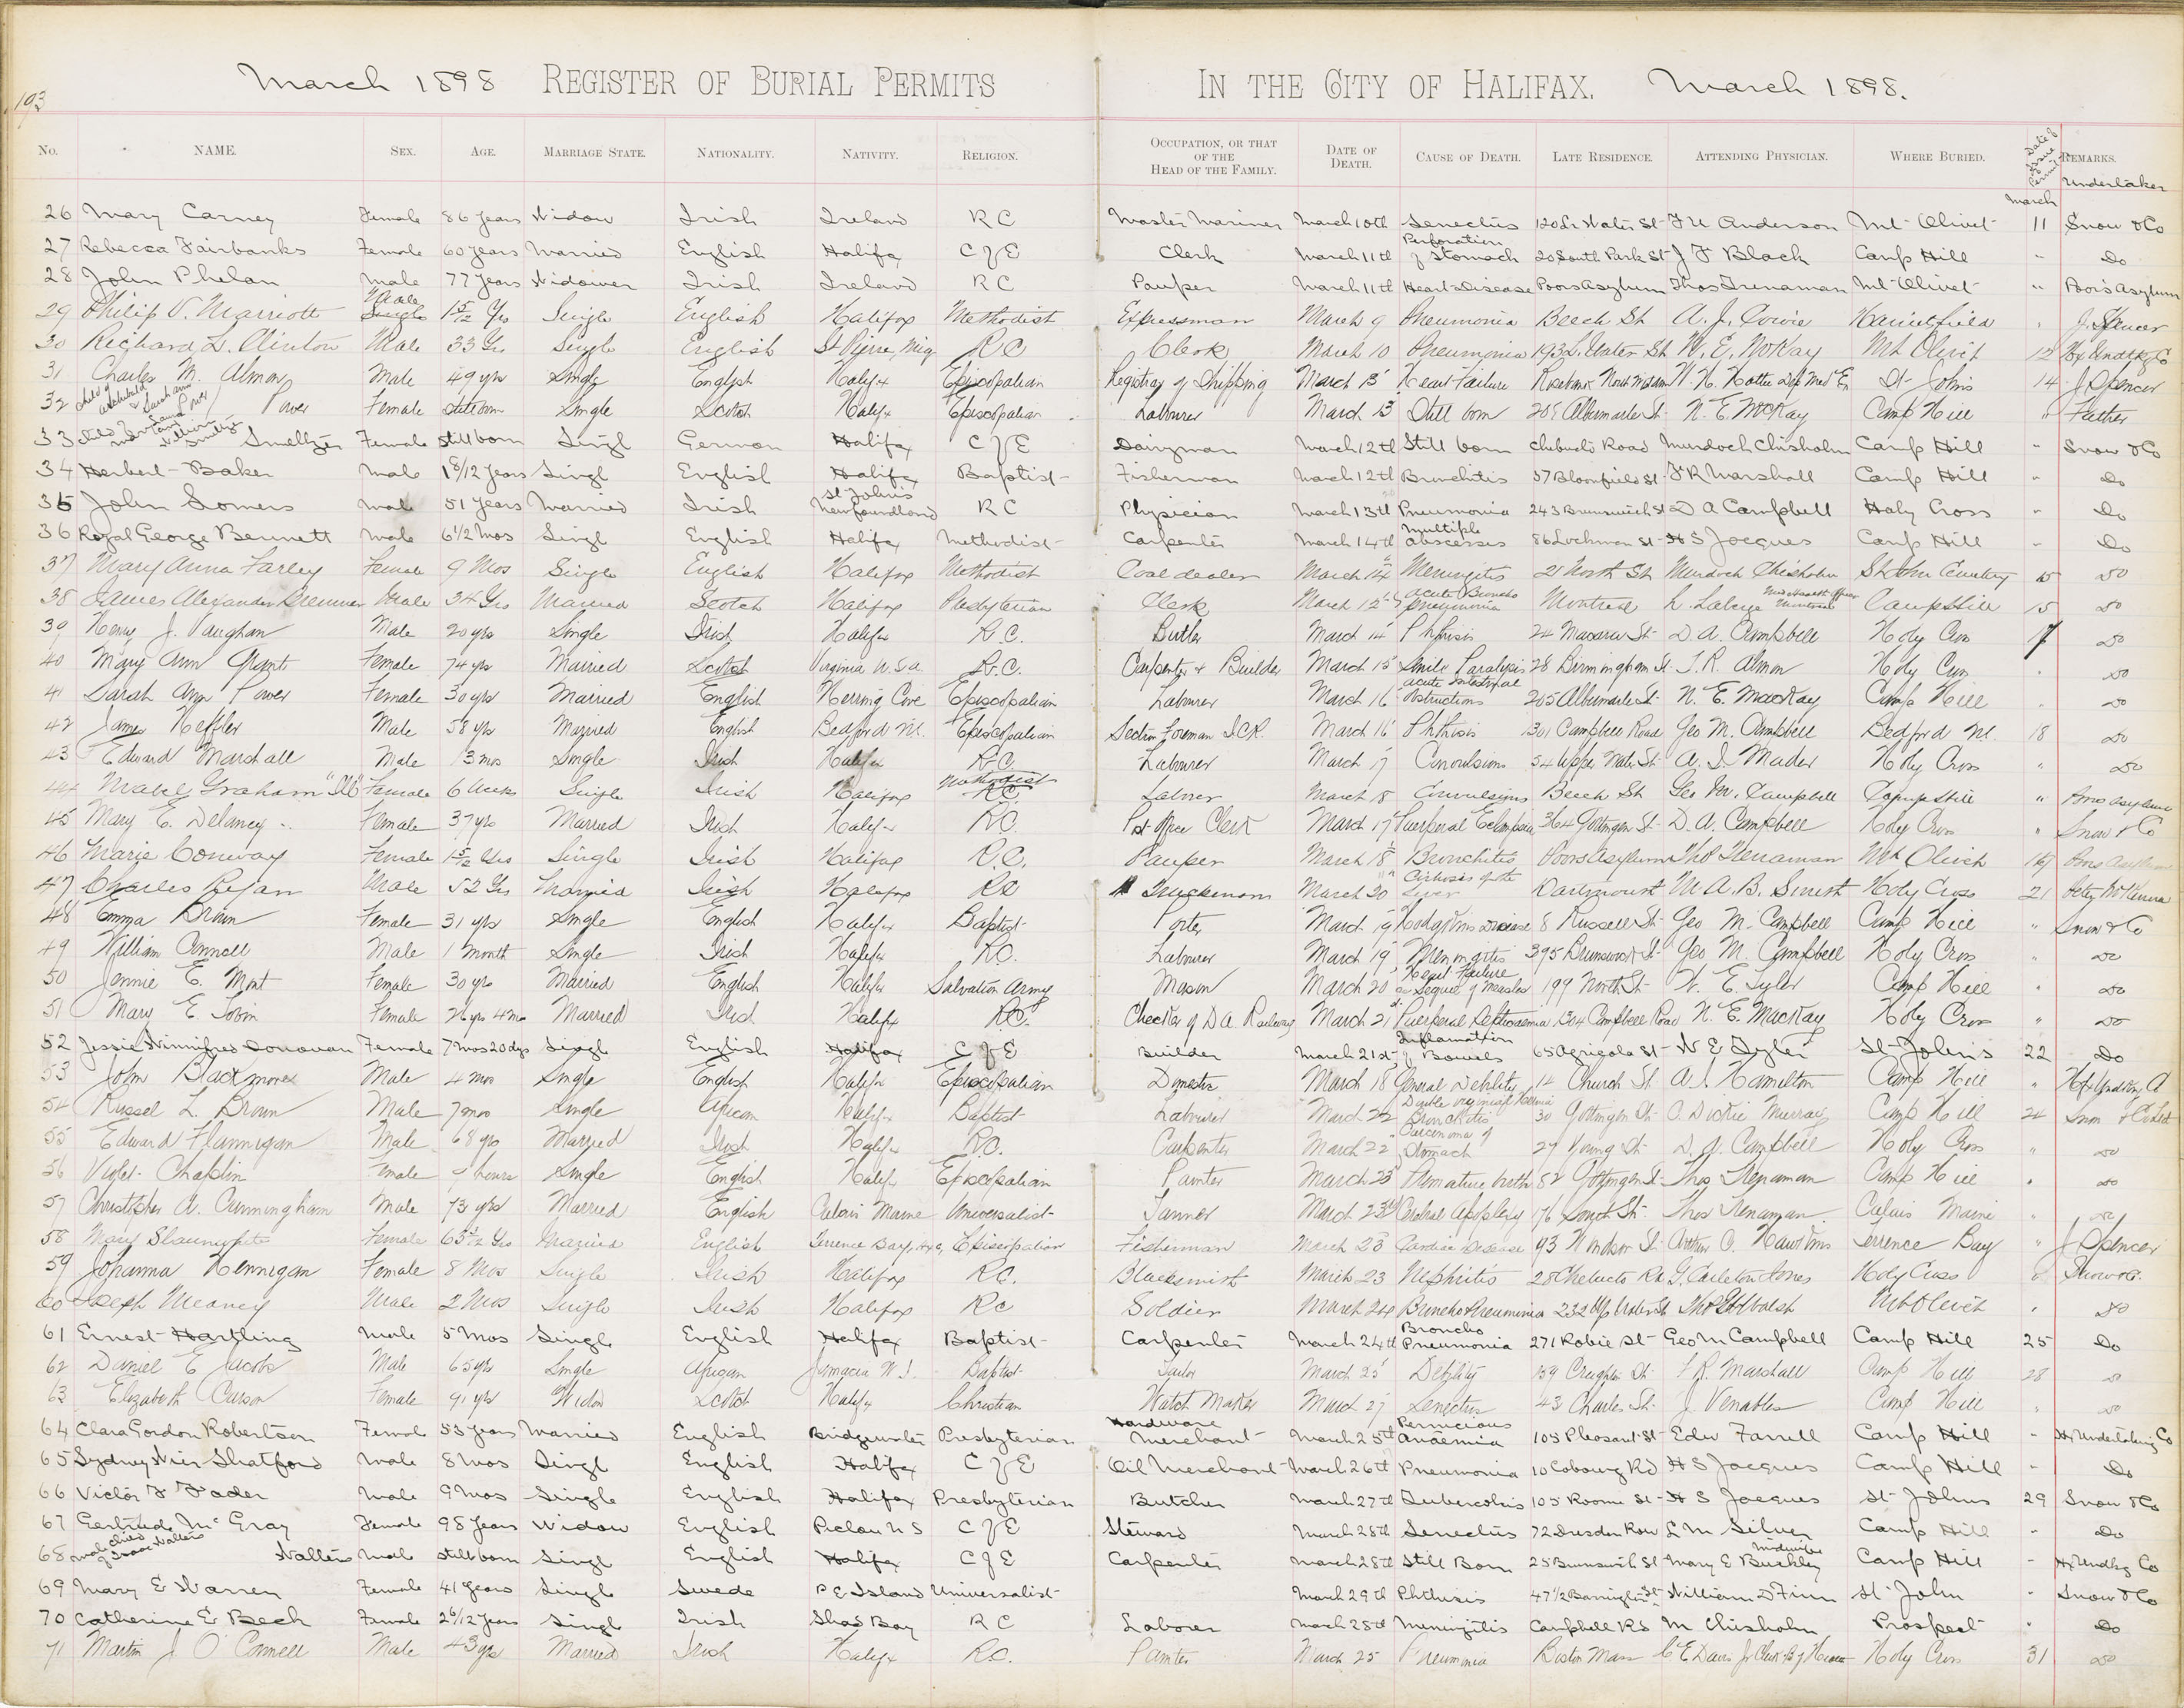 193
March 1898 REGISTER OF BURIAL PERMITS IN THE CITY OF HALIFAX. March 1898.
No. NAME. SEX. AGE. MARRIAGE STATE. NATIONALITY. NATIVITY. RELIGION. OCCUPATION, OR THAT OF THE HEAD OF THE FAMILY. DATE OF DEATH. CAUSE OF DEATH. LATE RESIDENCE. ATTENDING PHYSICIAN. WHERE BURIED. Date of Issue of Permit REMARKS.
March Undertaker
26 Mary Carney Female 86 years Widow Irish Ireland R C Master Mariner March 10th Senectus 120 Lr Water St Anderson Mt Olivet 11 Snow & Co
27 Rebecca Fairbanks Female 60 years Married English Halifax C of E Clerk March 11th Perforation of Stomach 20 South Park St J F Black Camp Hill " Do
28 John Phelan Male 77 years Widower Irish Ireland R C Pauper March 11th Heart Disease Poors Asylum Thos Trenaman Mt Olivet " Poor's Asylum
29 Philip V. Marriott Male Single 1 5/12 Yrs Single English Halifax Methodist Expressman March 9 Pneumonia Beech St A. J. Cowie Harrietsfield " J. Spencer
30 Richard L. Clinton Male 33 Yrs Single English St Pierre, Miq R C Clerk March 10 Pneumonia 193 L. Water St N. E. McKay Mt Olivet 12 Hx Undtkg Co
31 Charles M. Almon Male 49 yrs Single English Halifx Episcopalian Registrar of Shipping March 13 Heart Failure Rosebank St Johns 14 J. Spencer
32 Child of Archibald & Sarah Ann Power Power Female Still born Single Scotch Halifx Episcopalian Labourer March 13 Still born 205 Albermarle St N. E. McKay Camp Hill " Father
33 Smeltzer Female Still born Singl German Halifax C of E Dairyman March 12th Still born Chebucto Road Murdoch Chisholm Camp Hill " Snow & Co
34 Herbert Baker Male 1 8/12 years Singl English Halifax Baptist Fisherman March 12th Bronchitis 57 Bloomfield St F R Marshall Camp Hill " Do
35 John Somers Male 51 years Married Irish St John's Newfoundland R C Physician March 13th Pneumonia 243 Brunswick St D A Campbell Holy Cross " Do
36 Royal George Bennett Male 6 1/2 Mos Singl English Halifax Methodist Carpenter March 14th Multiple abscesses 86 Lockman St H S Jacques Camp Hill " Do
37 Mary Anna Farley Female 9 Mos Single English Halifax Methodist Coal dealer March 14 Meningitis 21 North St Murdoch Chisholm St John Cemetery 15 Do
38 James Alexander Bremner Male 34 Yrs Married Scotch Halifax Presbyterian Clerk March 12 Acute Broncho Pneumonia Montreal L. Laberge Med Health Officer Montreal Camp Hill 15 Do
39 Henry J. Vaughan Male 20 yrs Single Irish Halifax R.C. Butler March 14 Phthisis 24 Macara St D. A. Campbell Holy Cross 17 Do
40 Mary Ann Grant Female 74 yrs Married Scotch Virginia U.S.A. R.C. Carpenter & Builder March 15 Senile Paralysis 28 Birmingham St T. R. Almon Holy Cross " Do
41 Sarah Ann Power Female 30 yrs Married English Herring Cove Episcopalian Labourer March 16 Acute Intestinal Obstructions 205 Albermarle St N. E. MacKay Camp Hill " Do
42 James Heffler Male 58 yrs Married English Bedford NS. Episcopalian Section Foreman I.C.R. March 16 Phthisis 1301 Campbell Road Geo M. Campbell Bedford NS. 18 Do
43 Edward Marshall Male 13 mos Single Irish Halifax R.C. Labourer March 17 Convulsions 54 Upper Water St A. I. Mader Holy Cross " Do
44 Graham "Ill" Female 6 Weeks Single Irish Halifax Methodist R.C. Laborer March 18 Convulsions Beech St Geo M. Campbell Camp Hill " Poors Asylum
45 Mary E. Delaney Female 37 yrs Married Irish Halifx R.C. Post Office Clerk March 17 Puerperal Eclampsia 364 Gottingen St D. A. Campbell Holy Cross " Snow & Co
46 Marie Conway Female 1 5/12 Yrs Single Irish Halifax R.C. Pauper March 18 Bronchitis Poors Asylum Thos Trenaman Mt Olivet 19 Poors Asylum
47 Charles Regan Male 52 Yrs Married Irish Halifax R C Truckman March 20 Cirhosis of the Liver Dartmouth M. A. B. Smith Holy Cross 21 Peter McKenna
48 Emma Brown Female 31 yrs Single English Halifx Baptist Porter March 19 Hodgkins Disease 8 Russell St Geo M. Campbell Camp Hill " Snow & Co
49 William Connell Male 1 month Single Irish Halifx R.C. Labourer March 19 Meningitis 395 Brunswick St Geo M. Campbell Holy Cross " Do
50 Jennie E. Mont Female 30 yrs Married English Halifx Salvation Army Mason March 20 Heart Failure a Sequel of Measles 199 North St W. E. Tyler Camp Hill " Do
51 Mary E. Tobin Female 26 yrs 4 mo Married Irish Halifx R.C. Checker of D A. Railway March 21 Puerperal Septicaemia 1304 Campbell Road N. E. MacKay Holy Cross " Do
52 Jessie Winnifred Donovan Female 7 Mos 20 dys Singl English Halifax C of E Builder March 21st Inflamation of Bowels 65 Agricola St W E Tyler St John's 22 Do
53 John Blackmore Male 4 mos Single English Halifx Episcopalian Domestic March 18 General Debility 14 Church St A. I. Hamilton Camp Hill "
54 Russel L. Brown Male 7 mos Single African Halifx Baptist Labourer March 22 Double Inguinal Hernia Bronchitis 30 Gottingen St O. Dickie Murray Camp Hill 24 Snow & Co Ltd
55 Edward Flannigan Male 68 yrs Married Irish Halifx R.C. Carpenter March 22 Carcinoma of Stomach 27 Young St D. A. Campbell Holy Cross " Do
56 Violet Chaplin Female 9 hours Single English Halifx Episcopalian Painter March 23 Premature birth 82 Gottingen St Thos Trenaman Camp Hill " Do
57 Christopher A. Cunningham Male 73 yrs Married English Maine Universalist Tanner March 23rd Cerebral Apoplexy 176 South St Thos Trenaman Maine " Do
58 Mary Slaunwhite Female 65 Yrs Married English Terrence Bay, Episcopalian Fisherman March 23 Cardiac Disease 93 Windsor St Arthur Terrence Bay " J Spencer
59 Johanna Hennigan Female 8 Mos Single Irish Halifax R.C. Blacksmith March 23 Nephritis 28 Chebucto Rd G. Carleton Jones Holy Cross " Snow & Co.
60 Joseph Meaney Male 2 Mos Single Irish Halifax R C Soldier March 24 Broncho Pneumonia 232 Up Water St Thos Walsh Mt Olivet " Do
61 Ernest Hartling Male 5 Mos Singl English Halifax Baptist Carpenter March 24th Broncho Pneumonia 271 Robie St Geo M Campbell Camp Hill 25 Do
62 Daniel E Jacobs Male 65 yrs Single African Jamacia W.I. Baptist Tailor March 25 Debility 159 Creighton St F. R. Marshall Camp Hill 28 Do
63 Elizabeth Carson Female 91 yrs Widow Scotch Halifx Christian Watch Maker March 27 Senectus 43 Charles St J. Venables Camp Hill " Do
64 Clara Gordon Robertson Female 53 years Married English Bridgewater Presbyterian Hardware Merchant March 25th Pernicious Anaemia 105 Pleasant St Edw Farrell Camp Hill " Hx Undertaking Co
65 Sydney Wier Shatford Male 8 Mos Singl English Halifax C of E Oil Merchant March 26th Pneumonia 10 Cobourg Rd H S Jacques Camp Hill " Do
66 Victor F Fader Male 9 Mos Single English Halifax Presbyterian Butcher March 27th Tubercolosis 105 Roome St H S Jacques St Johns 29 Snow & Co
67 Gertrude McGray Female 98 years Widow English Pictou N S C of E Steward March 28th Senectus 72 Dresden Row L M Silver Camp Hill " Do
68 Male Child of Isaac Walters Walters Male Still born Singl English Halifax C of E Carpenter March 28th Still Born 25 Brunswick St Mary E Buckley Midwife Camp Hill " Hx Undtkg Co
69 Mary E Warren Female 41 years Singl Swede P E Island Universalist March 29th Phthisis 47 1/2 Barrington St William D Finn St John " Snow & Co
70 Catherine E Beck Female 2 6/12 years Singl Irish Shad Bay R C Laborer March 28th Meningitis Campbell Rd M Chisholm Prospect " Do
71 Martin J O'Connell Male 43 yrs Married Irish Halifx R.C. Painter March 25 Pneumonia Boston Mass C E Davis Jr Clerk B of Health Holy Cross 31 Do